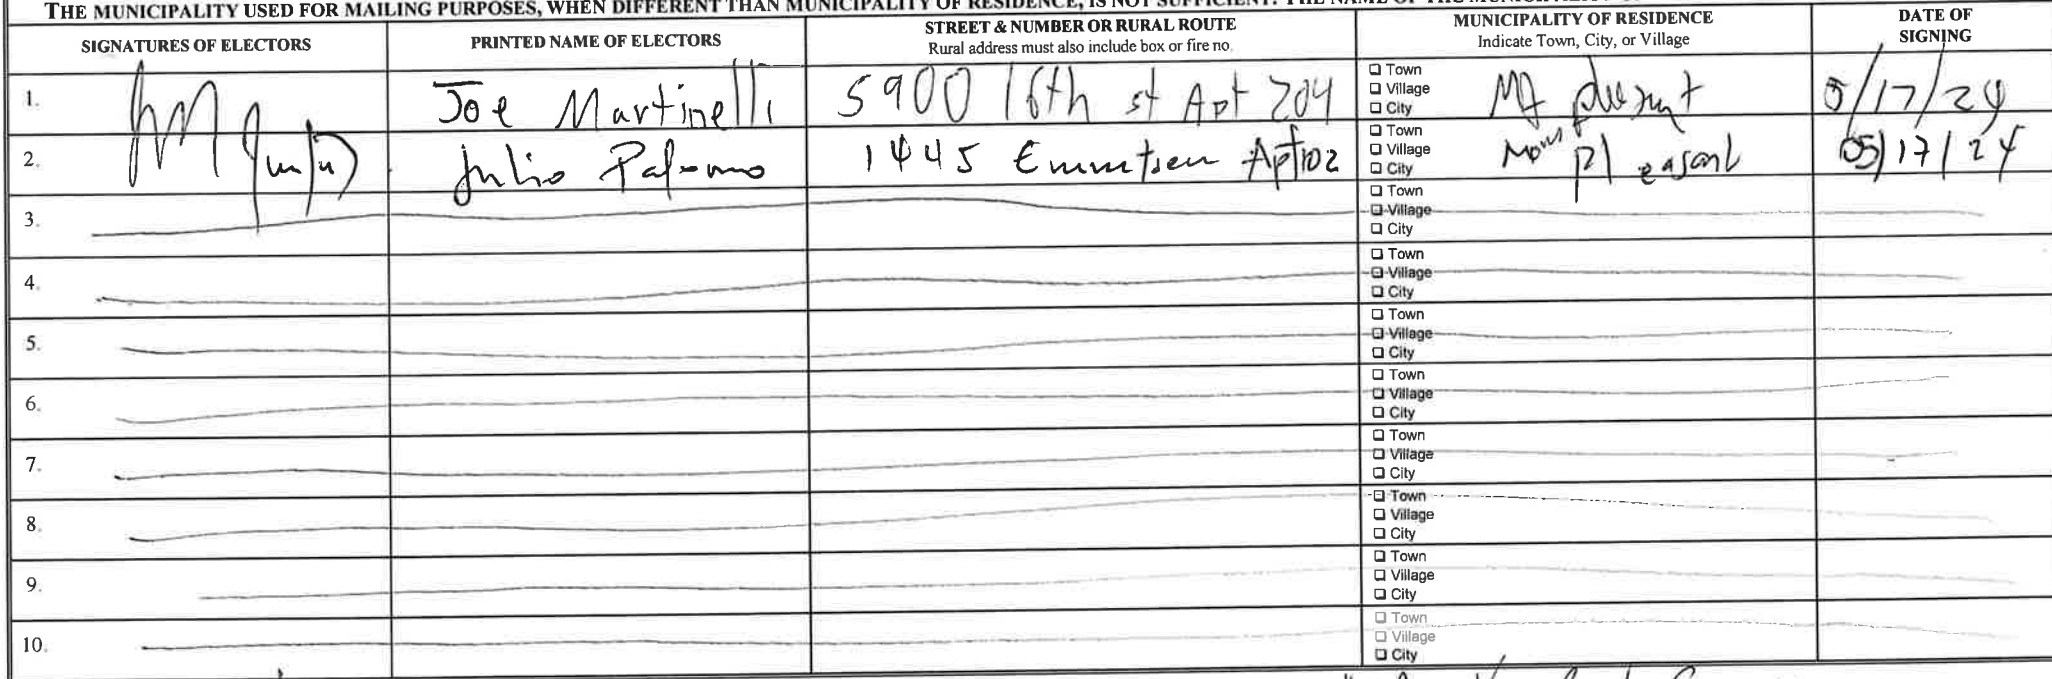 THE MUNICIPALITY USED FOR MAILING PURPOSES, WHEN DIFFERENT THAN MUNICIPALITY OF RESIDENCE, IS NOT SUFFICIENT.
SIGNATURES OF ELECTORS
PRINTED NAME OF ELECTORS
STREET & NUMBER OR RURAL ROUTE
Rural address must also include box or fire no.
MUNICIPALITY OF RESIDENCE
Indicate Town, City, or Village
DATE OF
SIGNING
1. Joe Martinelli 5900 16th st Apt 204
Town
Village
City
Mt 5/17/24
2. Julio Palomo 1445 Apt 102
Town
Village
City
Pleasant 05/17/24
3.
Town
Village
City
4.
Town
Village
City
5.
Town
Village
City
6.
Town
Village
City
7.
Town
Village
City
8.
Town
Village
City
9.
Town
Village
City
10.
Town
Village
City